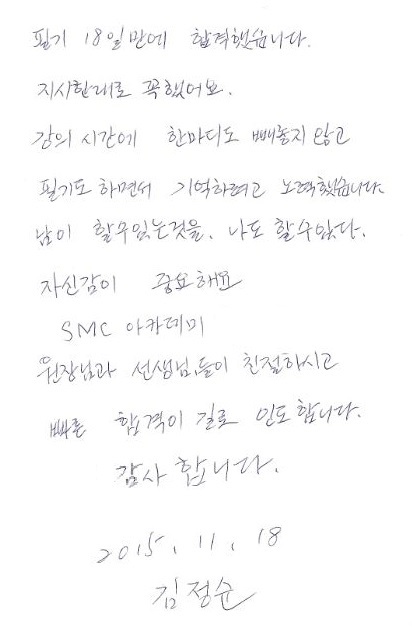 필기 18일만에 합격했습니다.
지시한대로 꼭했어요.
강의 시간에 한마디도 빼놓지 않고
필기도 하면서 기억하려고 노력했습니다.
남이 할수있는것을. 나도 할수있다.
자신감이 중요해요
SMC 아카데미
원장님과 선생님들이 친절하시고
빠른 합격이 길로 인도합니다.
감사합니다.
2015. 11. 18
김정순